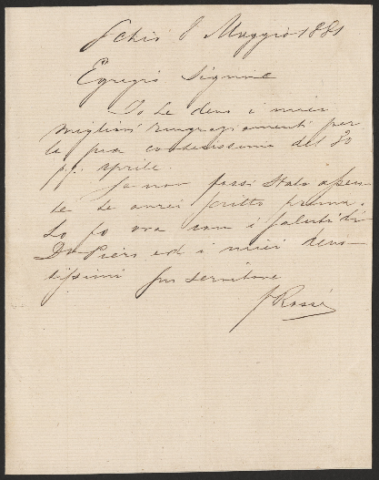 Schio 8 Maggio 1881
Egregio Signore
Io Le devo i miei
migliori ringraziamenti per
la sua cortesissima del 30
pp. Aprile.
Se non fossi stato assen-
te Le avrei scritto prima.
Lo fo ora con i saluti di
Do Piero ed i miei devo-
tissimi suo servitore
Rossi